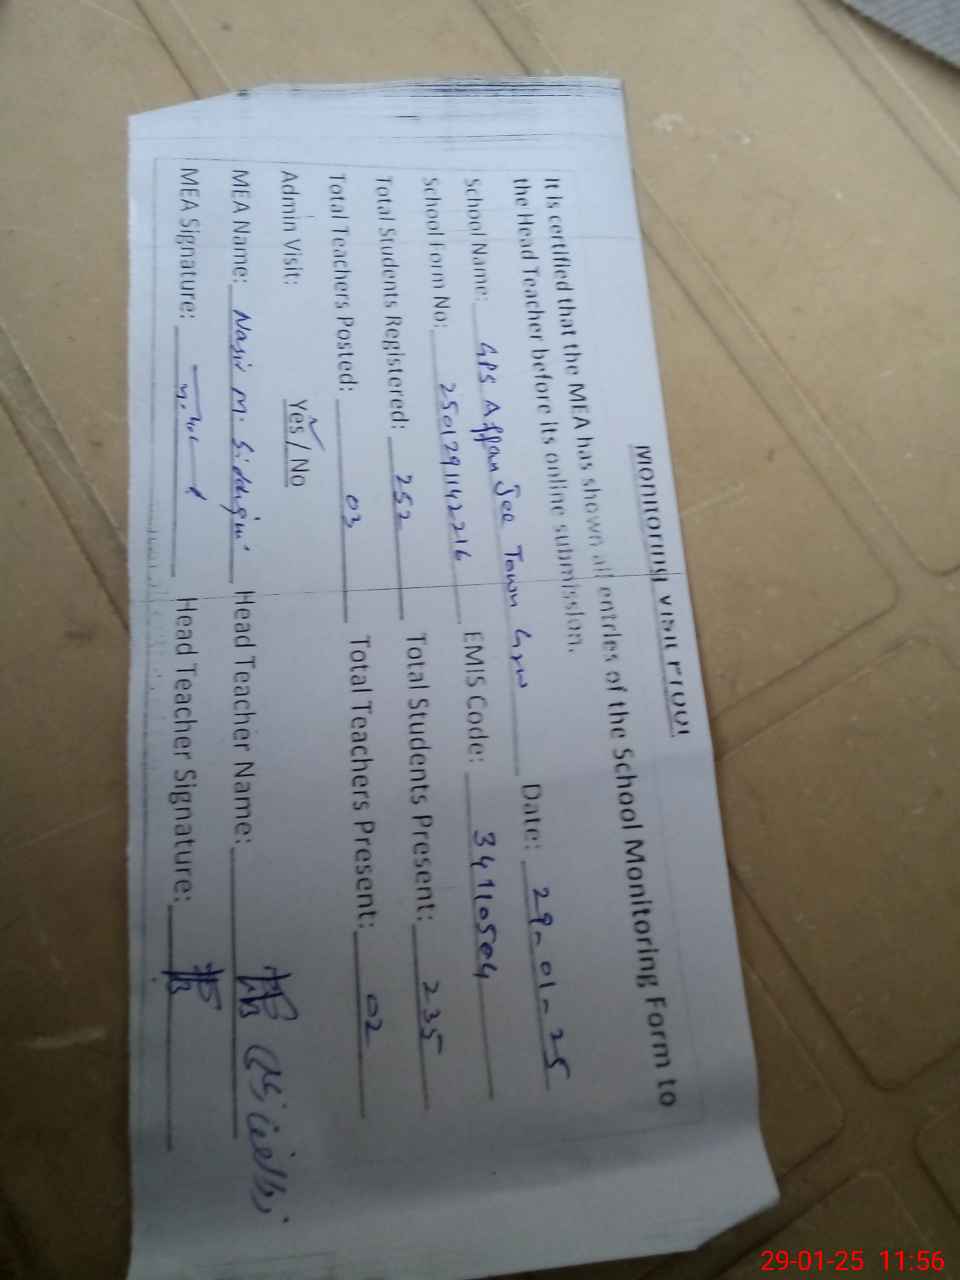 Monitoring Visit Proof
It is certified that the MEA has shown all entries of the School Monitoring Form to
the Head Teacher before its online submission.
School Name: GPS Affan See Town Grw Date: 29-01-25
School Form No: 2501291142216 EMIS Code: 34110504
Total Students Registered: 252 Total Students Present: 235
Total Teachers Posted: 03 Total Teachers Present: 02
Admin Visit: Yes / No
MEA Name: Nasir M. Siddiqui Head Teacher Name:
MEA Signature: Head Teacher Signature:
29-01-25 11:56